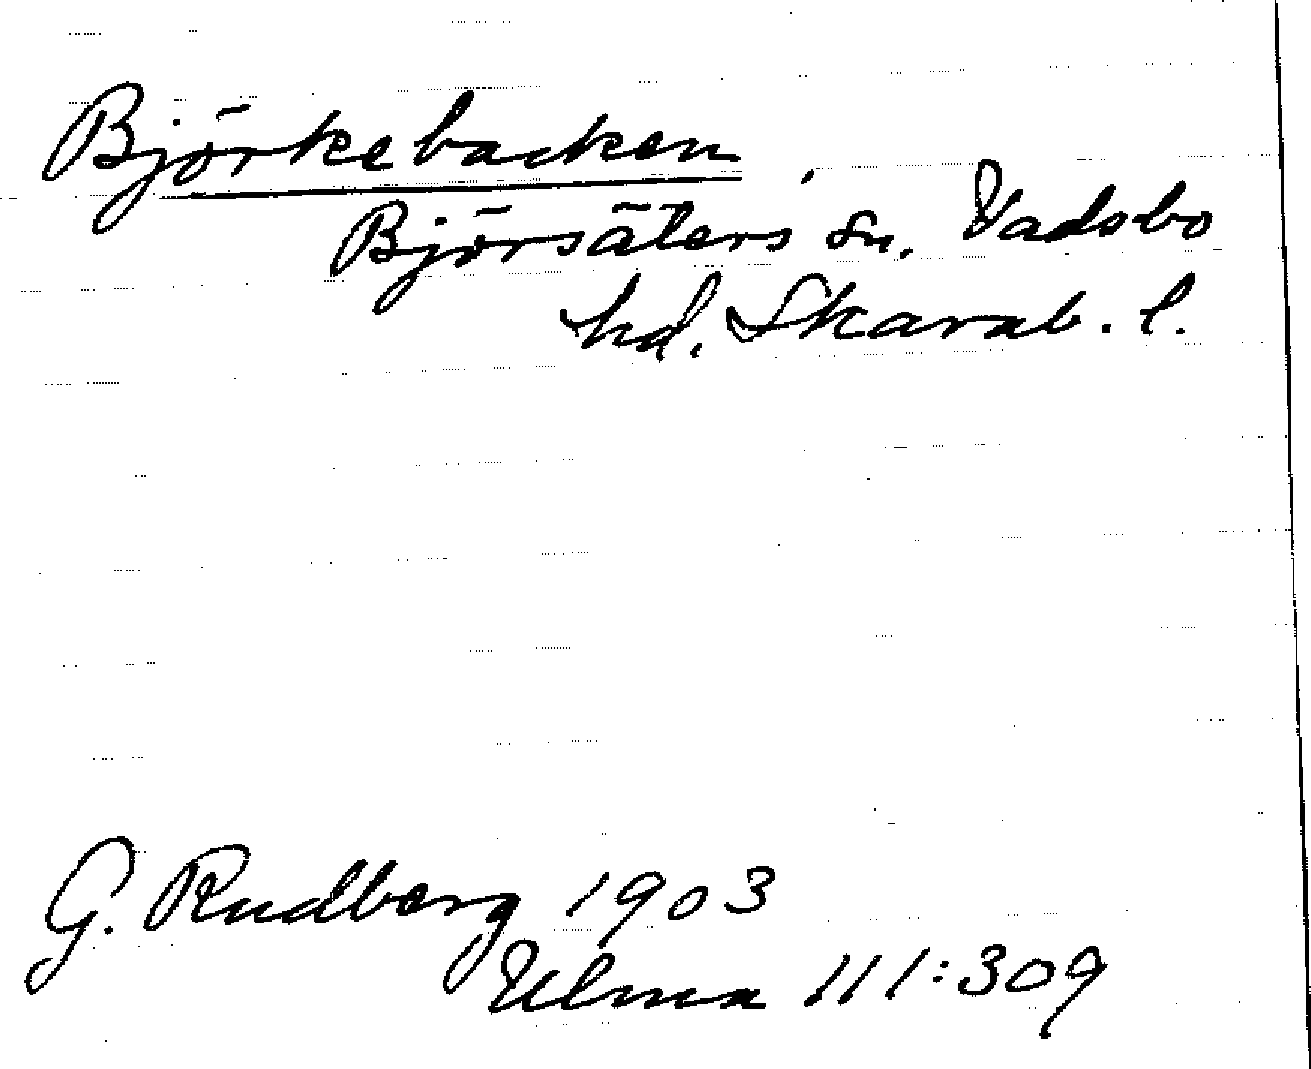 Björkebacken,
Björsäters sn. Vadsbo
hd. Skarab. l.
G. Rudberg 1903
Ulma 111:309